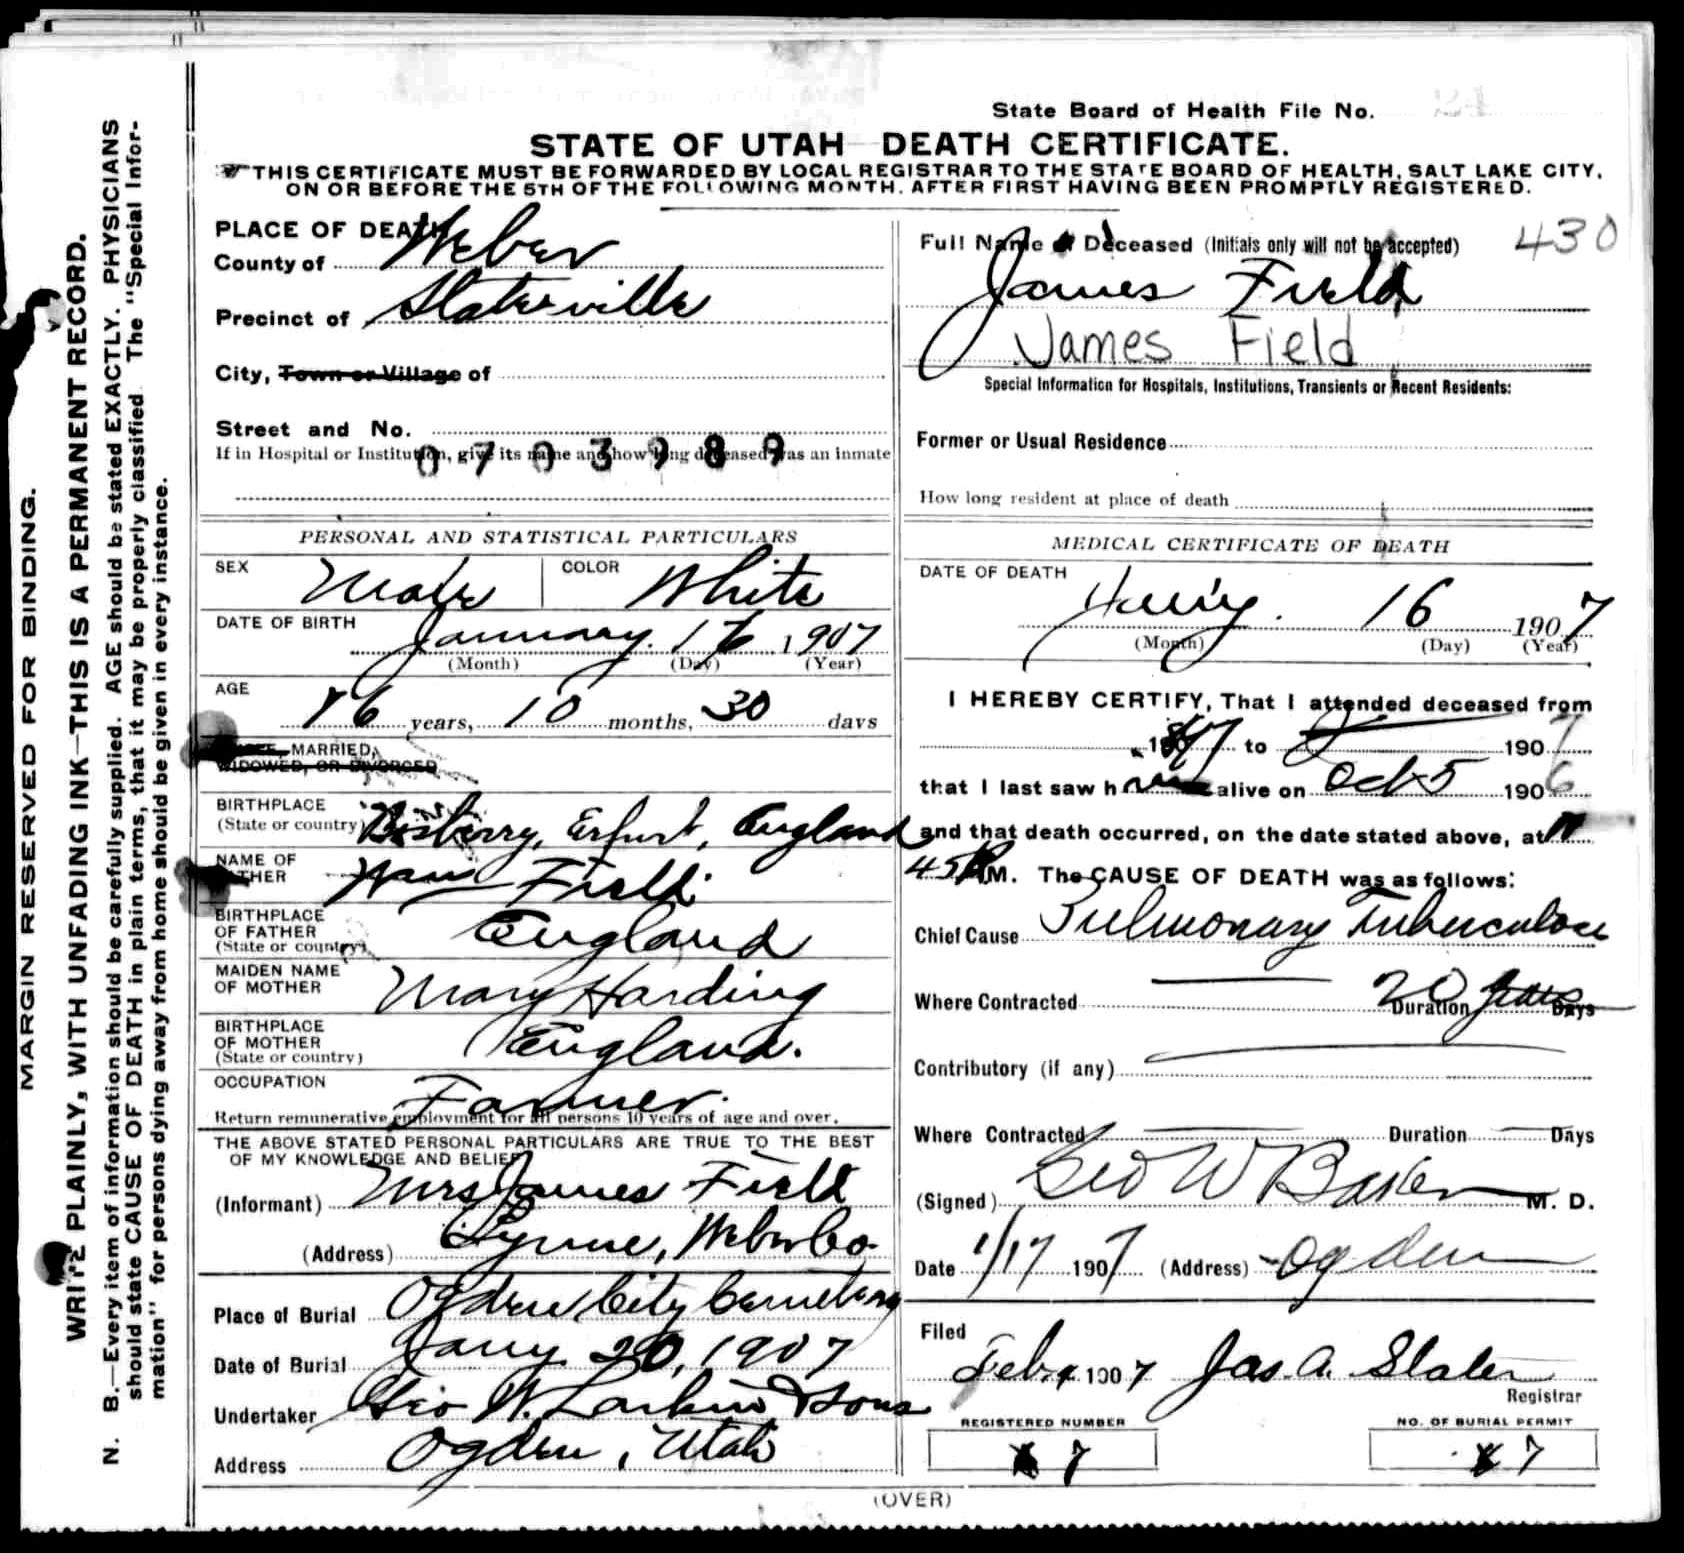 State Board of Health File No.
STATE OF UTAH—DEATH CERTIFICATE.
THIS CERTIFICATE MUST BE FORWARDED BY LOCAL REGISTRAR TO THE STATE BOARD OF HEALTH, SALT LAKE CITY,
ON OR BEFORE THE 5TH OF THE FOLLOWING MONTH, AFTER FIRST HAVING BEEN PROMPTLY REGISTERED.
MARGIN RESERVED FOR BINDING.
WRITE PLAINLY, WITH UNFADING INK—THIS IS A PERMANENT RECORD.
N. B.—Every item of information should be carefully supplied. AGE should be stated EXACTLY. PHYSICIANS
should state CAUSE OF DEATH in plain terms, that it may be properly classified. The "Special Infor-
mation" for persons dying away from home should be given in every instance.
PLACE OF DEATH
County of Weber
Precinct of Slaterville
City, Town or Village of
Street and No.
If in Hospital or Institution, give its name and how long deceased was an inmate
0703989
PERSONAL AND STATISTICAL PARTICULARS
SEX Male COLOR White
DATE OF BIRTH January 1907
(Month) (Day) (Year)
AGE
76 years, 10 months, 30 days
MARRIED,
WIDOWED, OR DIVORCED
BIRTHPLACE
(State or country) England
NAME OF
FATHER Wm Field
BIRTHPLACE
OF FATHER
(State or country) England
MAIDEN NAME
OF MOTHER Mary Harding
BIRTHPLACE
OF MOTHER
(State or country) England.
OCCUPATION Farmer.
Return remunerative employment for all persons 10 years of age and over.
THE ABOVE STATED PERSONAL PARTICULARS ARE TRUE TO THE BEST
OF MY KNOWLEDGE AND BELIEF
(Informant) Mrs James Field
(Address) Lynne, Weber Co.
Place of Burial Ogden City Cemetery
Date of Burial Jany 20, 1907
Undertaker Geo W. Larkin & Sons
Address Ogden, Utah
Full Name of Deceased (Initials only will not be accepted) 430
James Field
James Field
Special Information for Hospitals, Institutions, Transients or Recent Residents:
Former or Usual Residence
How long resident at place of death
MEDICAL CERTIFICATE OF DEATH
DATE OF DEATH
Jany. 16 1907
(Month) (Day) (Year)
I HEREBY CERTIFY, That I attended deceased from
to 190
that I last saw him alive on Oct 5 1906
and that death occurred, on the date stated above, at
45 M. The CAUSE OF DEATH was as follows:
Chief Cause Pulmonary Tuberculosis
Where Contracted Duration 20 years Days
Contributory (if any)
Where Contracted Duration Days
(Signed) Geo W Baker M. D.
Date 1/17 1907 (Address) Ogden
Filed
Feb. 1907 Jas. A. Slater
Registrar
REGISTERED NUMBER
7
NO. OF BURIAL PERMIT
7
(OVER)